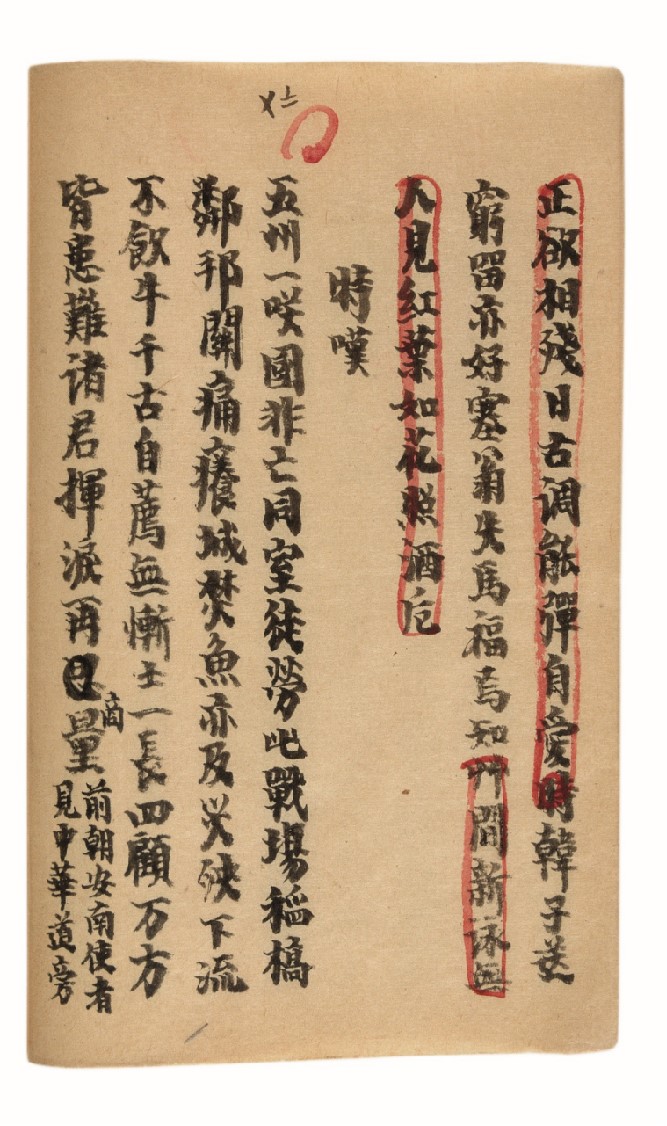 正欲相殘日古调能彈自愛時韓子送
窮留亦好塞翁失馬福焉知艸間新詠無
人見紅葉如花照酒卮
時嘆
五州一咲國非亡同室徒勞此戰場稻槁
鄰邦關痛癢城焚魚亦及災殃下流
不飲牛千古自薦無慚士一長四顧万方
皆患難諸君揮淚再商量
前朝安南使者
見中華道旁